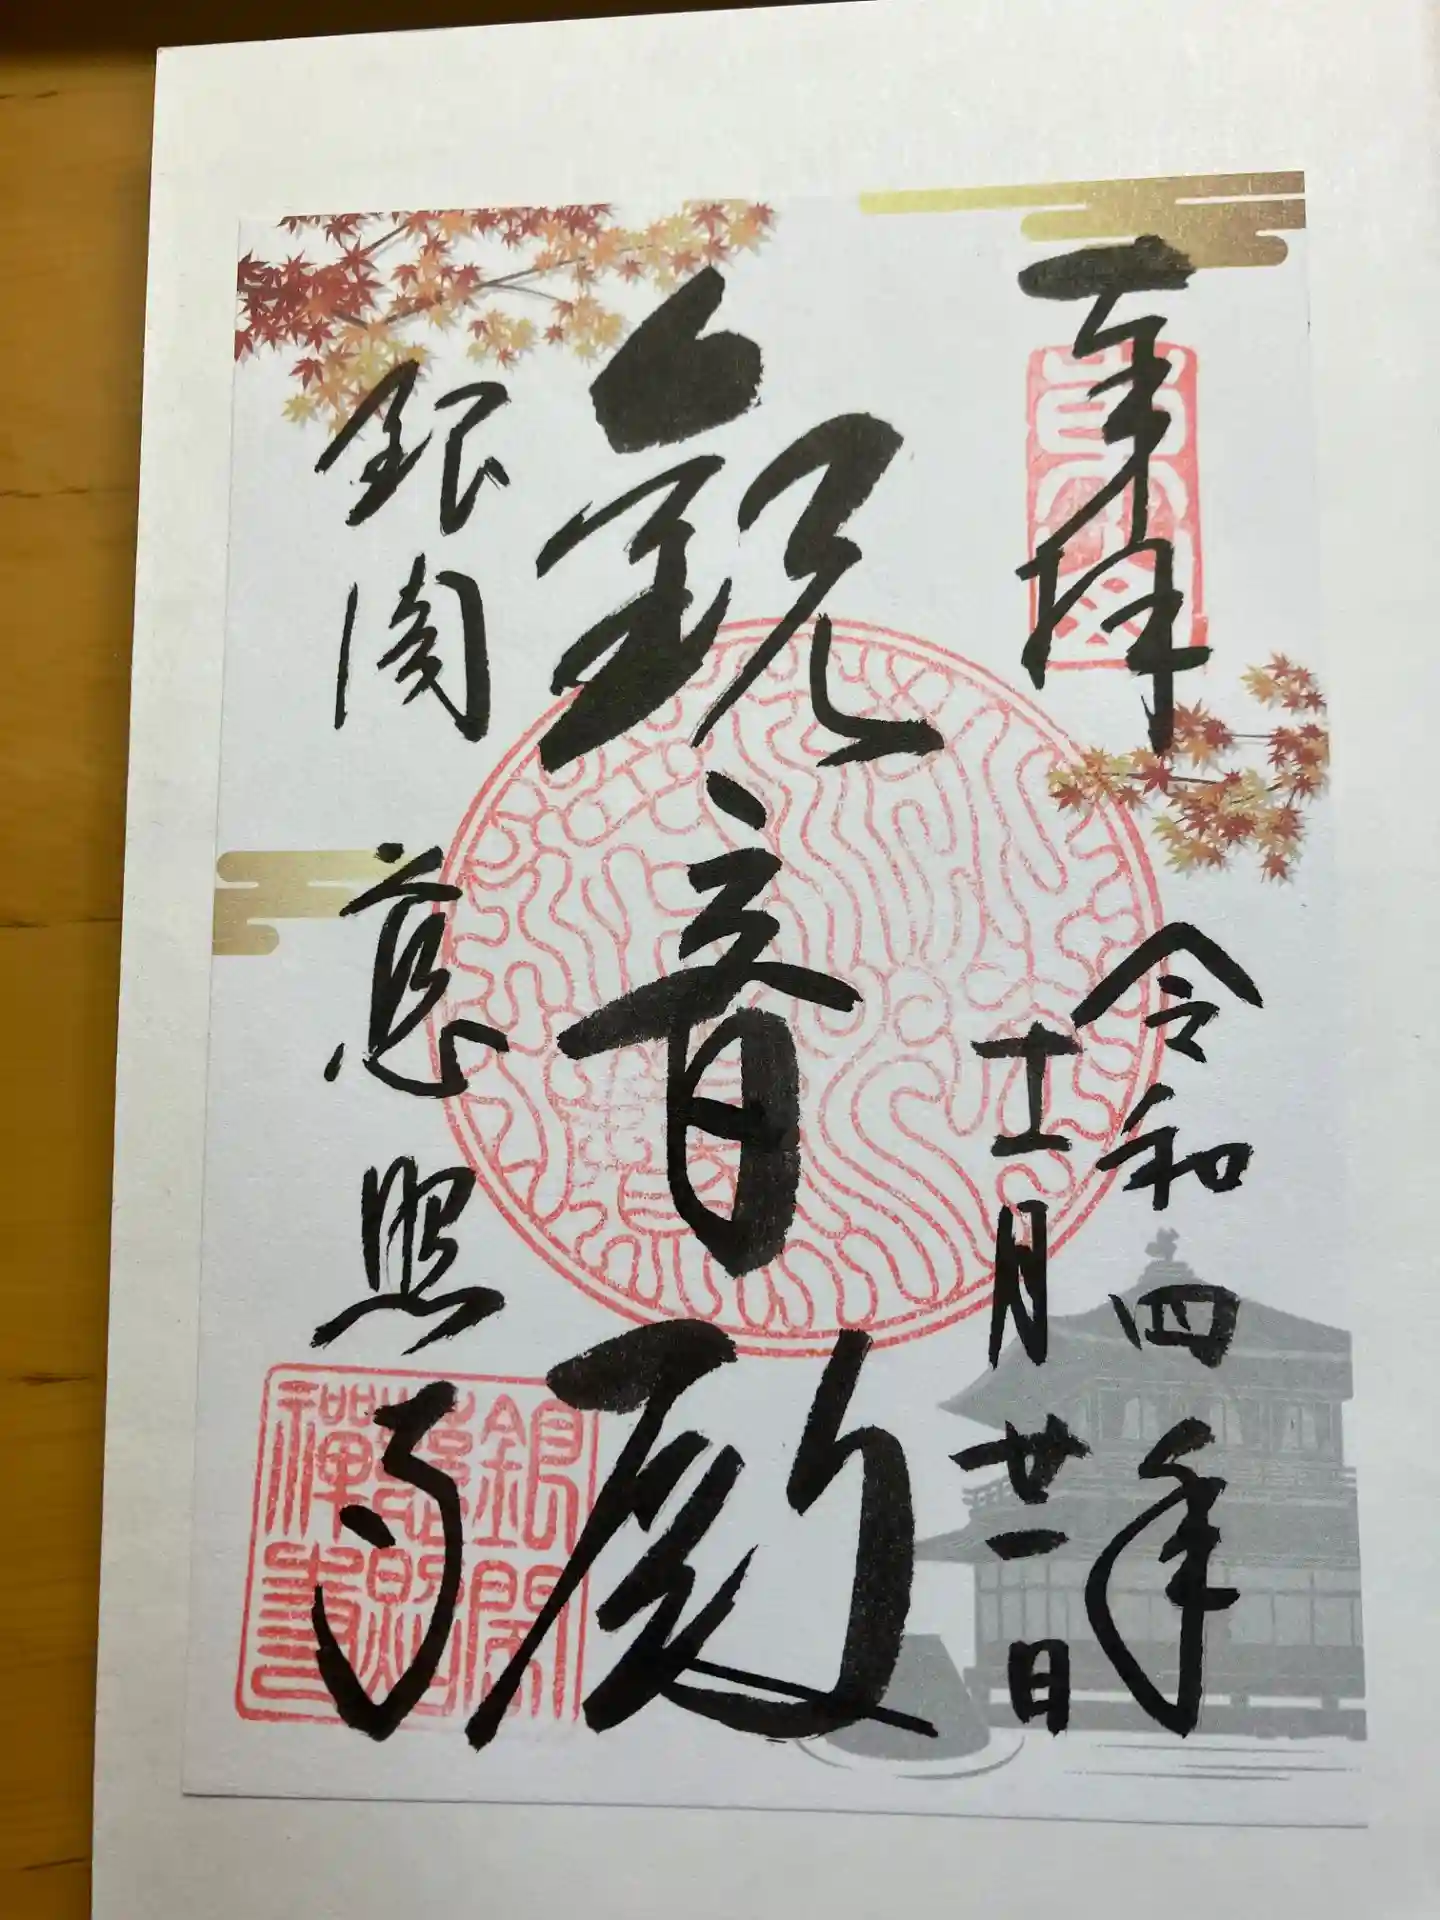 奉拝
令和四年
十一月廿一日
観音殿
銀閣
慈照寺
銀閣
慈照
禅寺